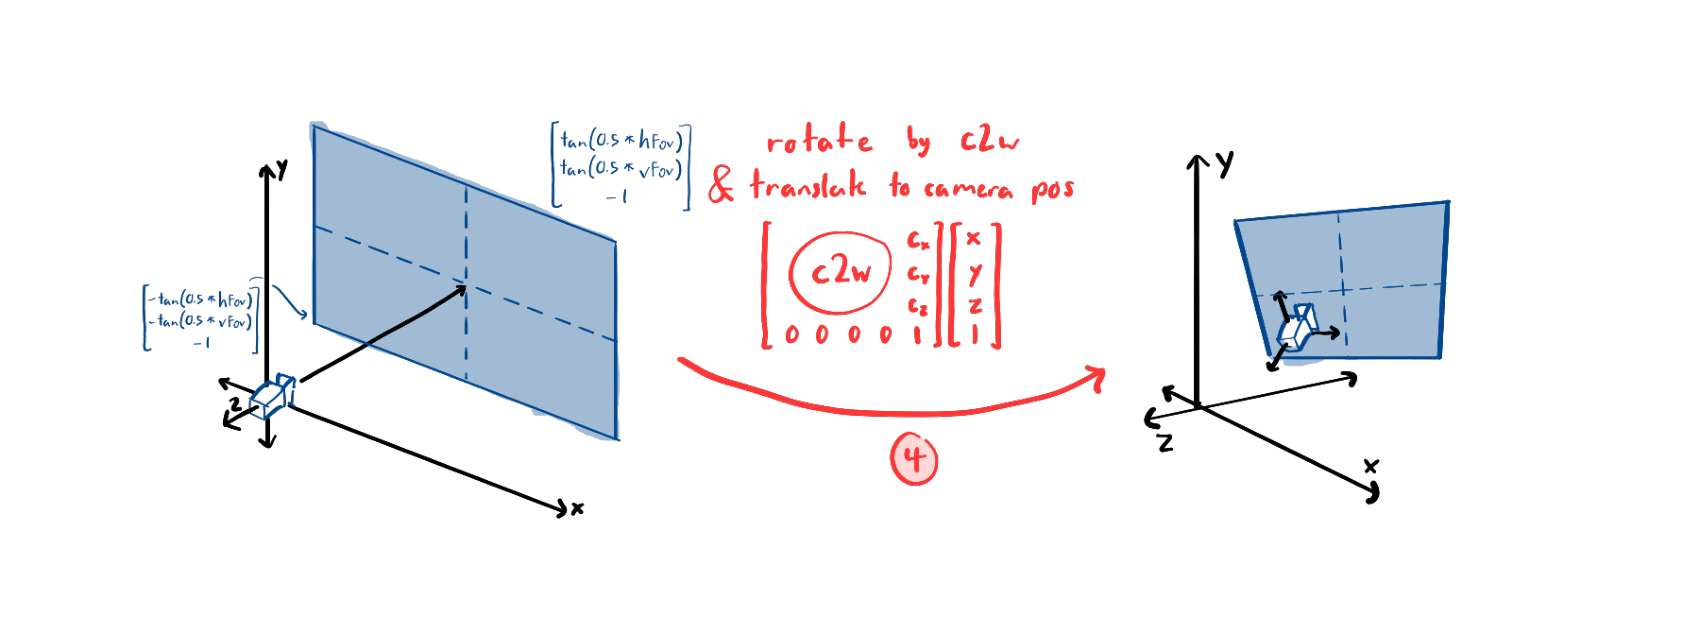 y
[tan(0.5 * hFov)
tan(0.5 * vFov)
-1]
[-tan(0.5 * hFov)
-tan(0.5 * vFov)
-1]
z
x
rotate by c2w
& translate to camera pos
[c2w cx] [x
cy y
cz z
0 0 0 0 1] 1]
4
y
z
x